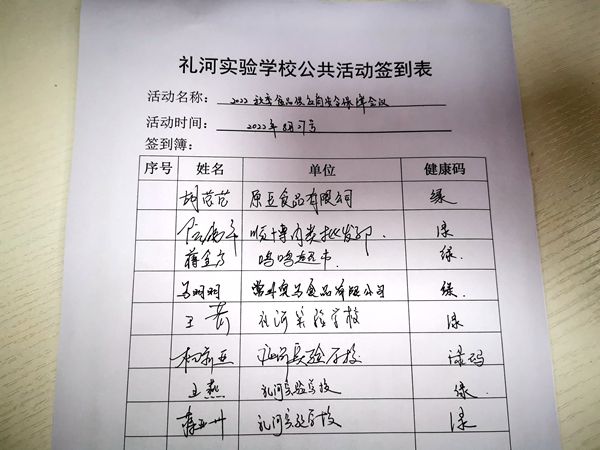 礼河实验学校公共活动签到表
活动名称: 2022秋季食品供应商安全保障会议
活动时间: 2022年8月27号
签到簿:
序号 姓名 单位 健康码
胡范范 原豆食品有限公司 绿
顺博肉类批发部. 绿
蒋金方 鸣鸣超市. 绿.
马明明 食品有限公司 绿.
王芳 礼河实验学校 绿
杨新亚 礼河实验学校 绿码
王燕 礼河实验学校 绿.
薛亚州 礼河实验学校 绿